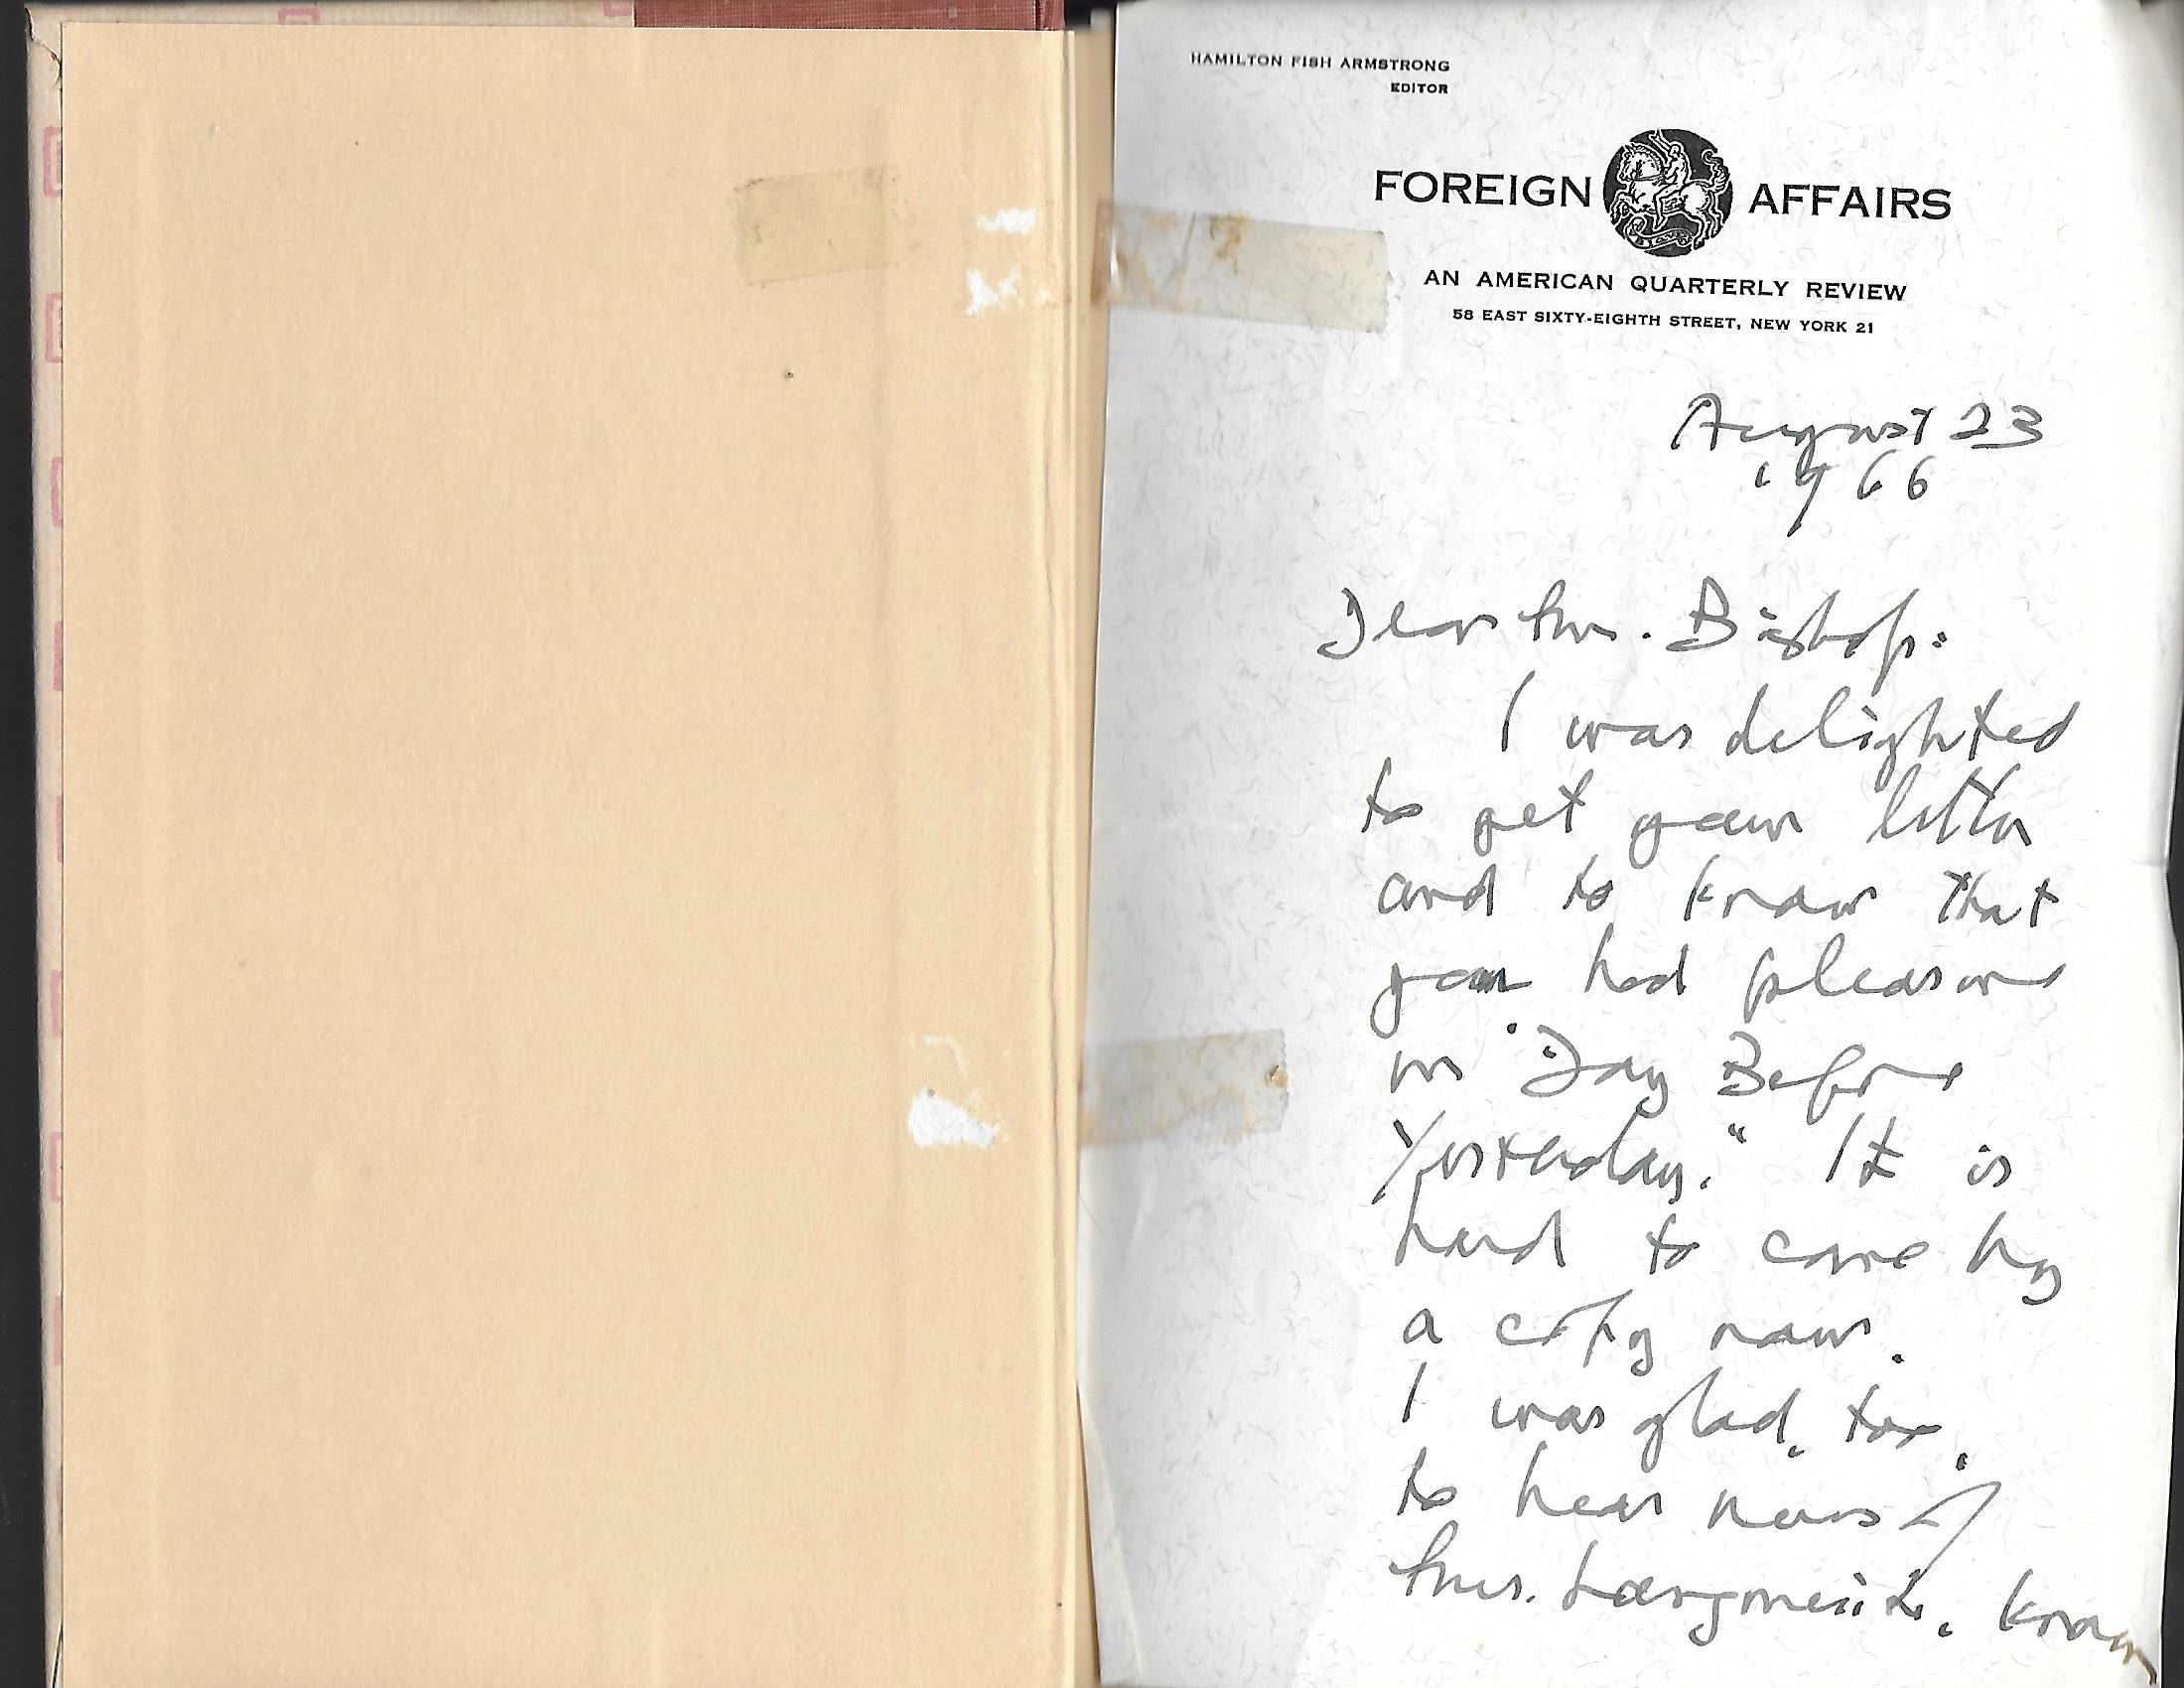 HAMILTON FISH ARMSTRONG
EDITOR
FOREIGN AFFAIRS
AN AMERICAN QUARTERLY REVIEW
58 EAST SIXTY-EIGHTH STREET, NEW YORK 21
August 23
1966
Dear Mr. Bishop:
I was delighted
to get your letter
and to know that
you had pleasure
in "Day Before
Yesterday." It is
hard to come by
a copy now.
I was glad, too,
to hear news of
Mrs.